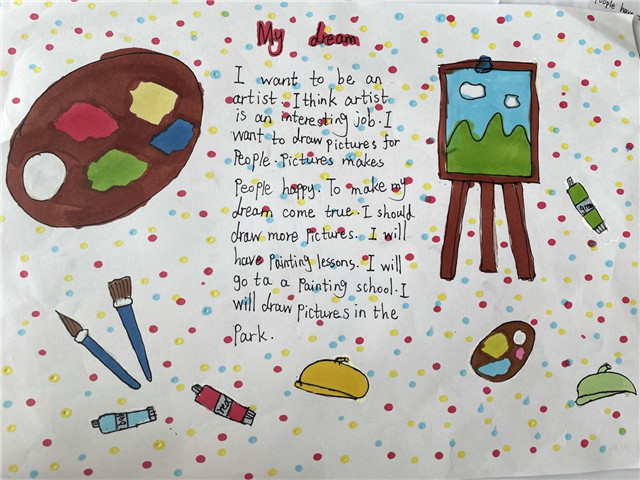 My dream
I want to be an
artist. I think artist
is an interesting job. I
want to draw pictures for
People. Pictures makes
People happy. To make my
dream come true. I should
draw more Pictures. I will
have Painting lessons. I will
go to a Painting school. I
will draw Pictures in the
Park.
red